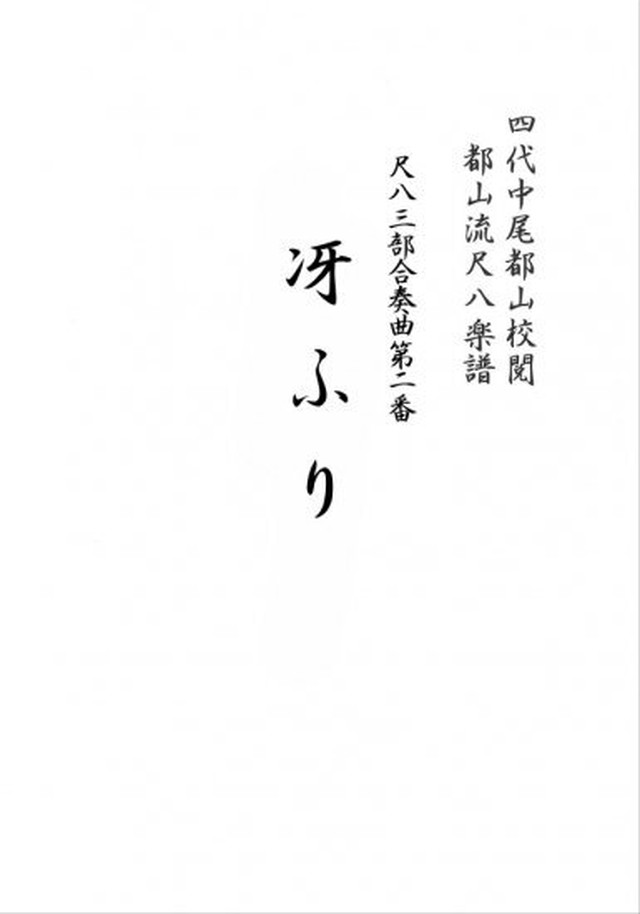 四代中尾都山校閲
都山流尺八楽譜
尺八三部合奏曲第二番
冴ふり